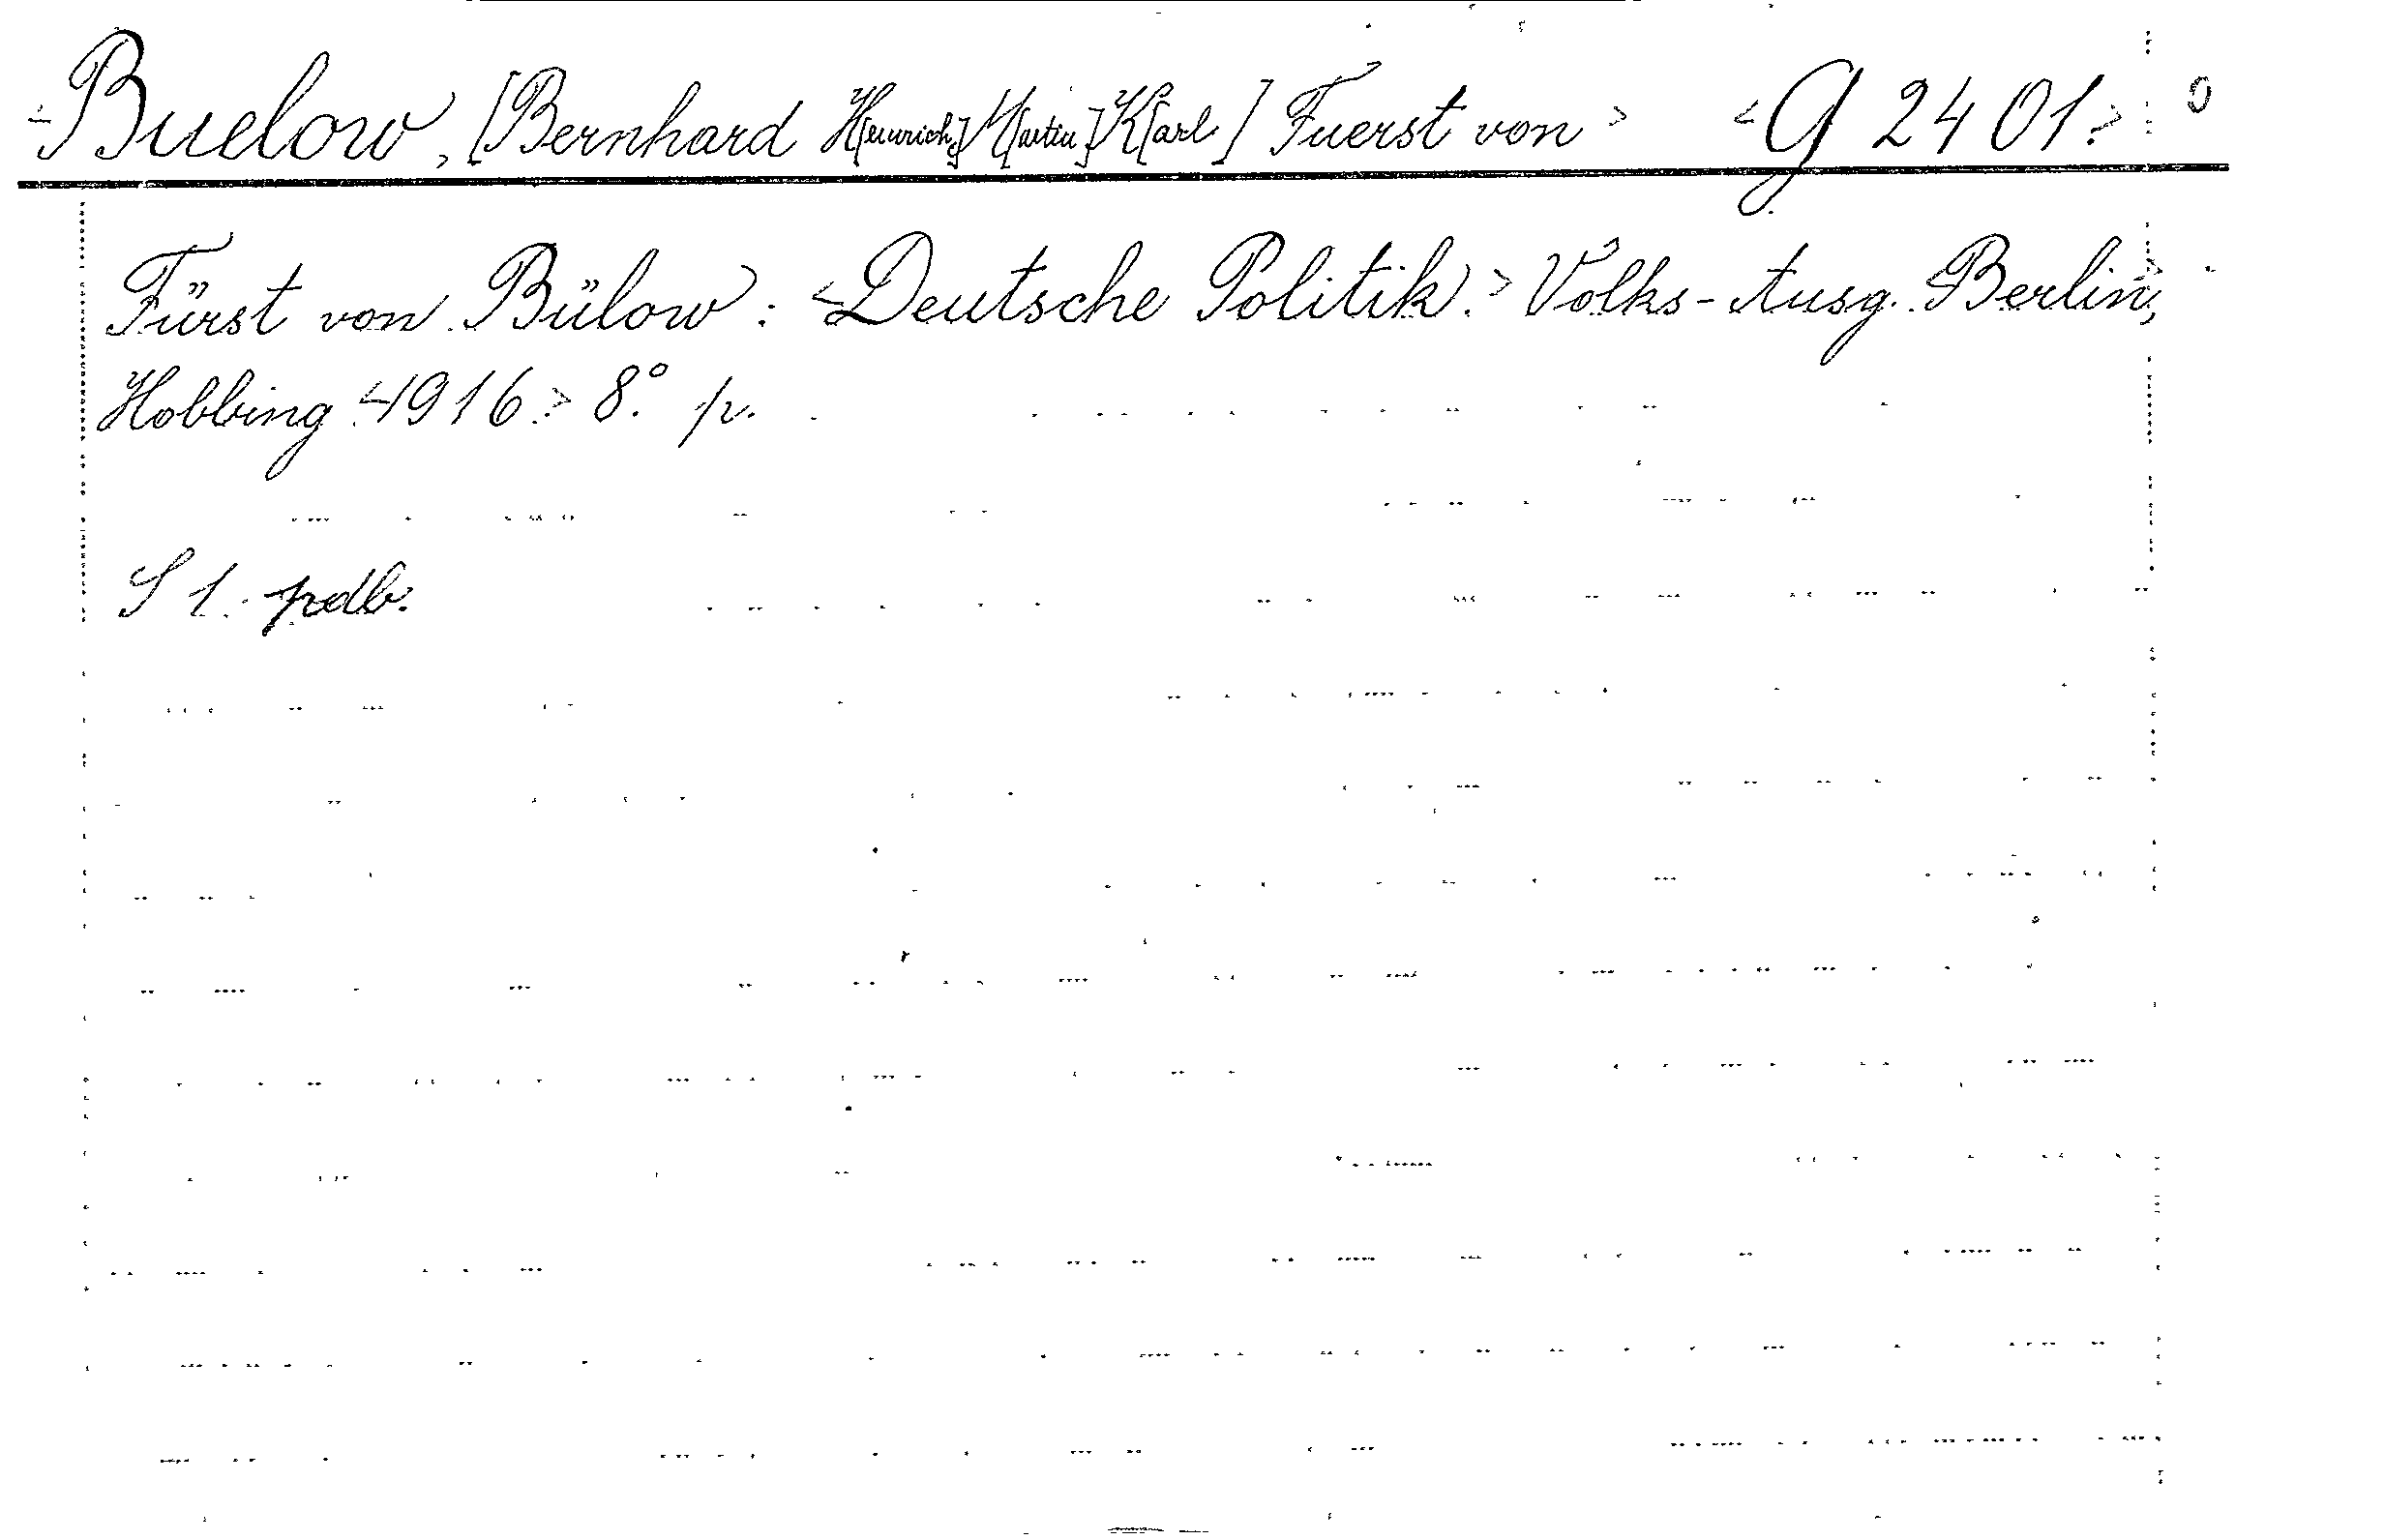 <Buelow, [Bernhard H[einrich] M[artin] K[arl] Fuerst von> <G 2401>
Fürst von Bülow: <Deutsche Politik.> Volks-Ausg. Berlin,
Hobbing <1916.> 8° p.
S 1. pdb.